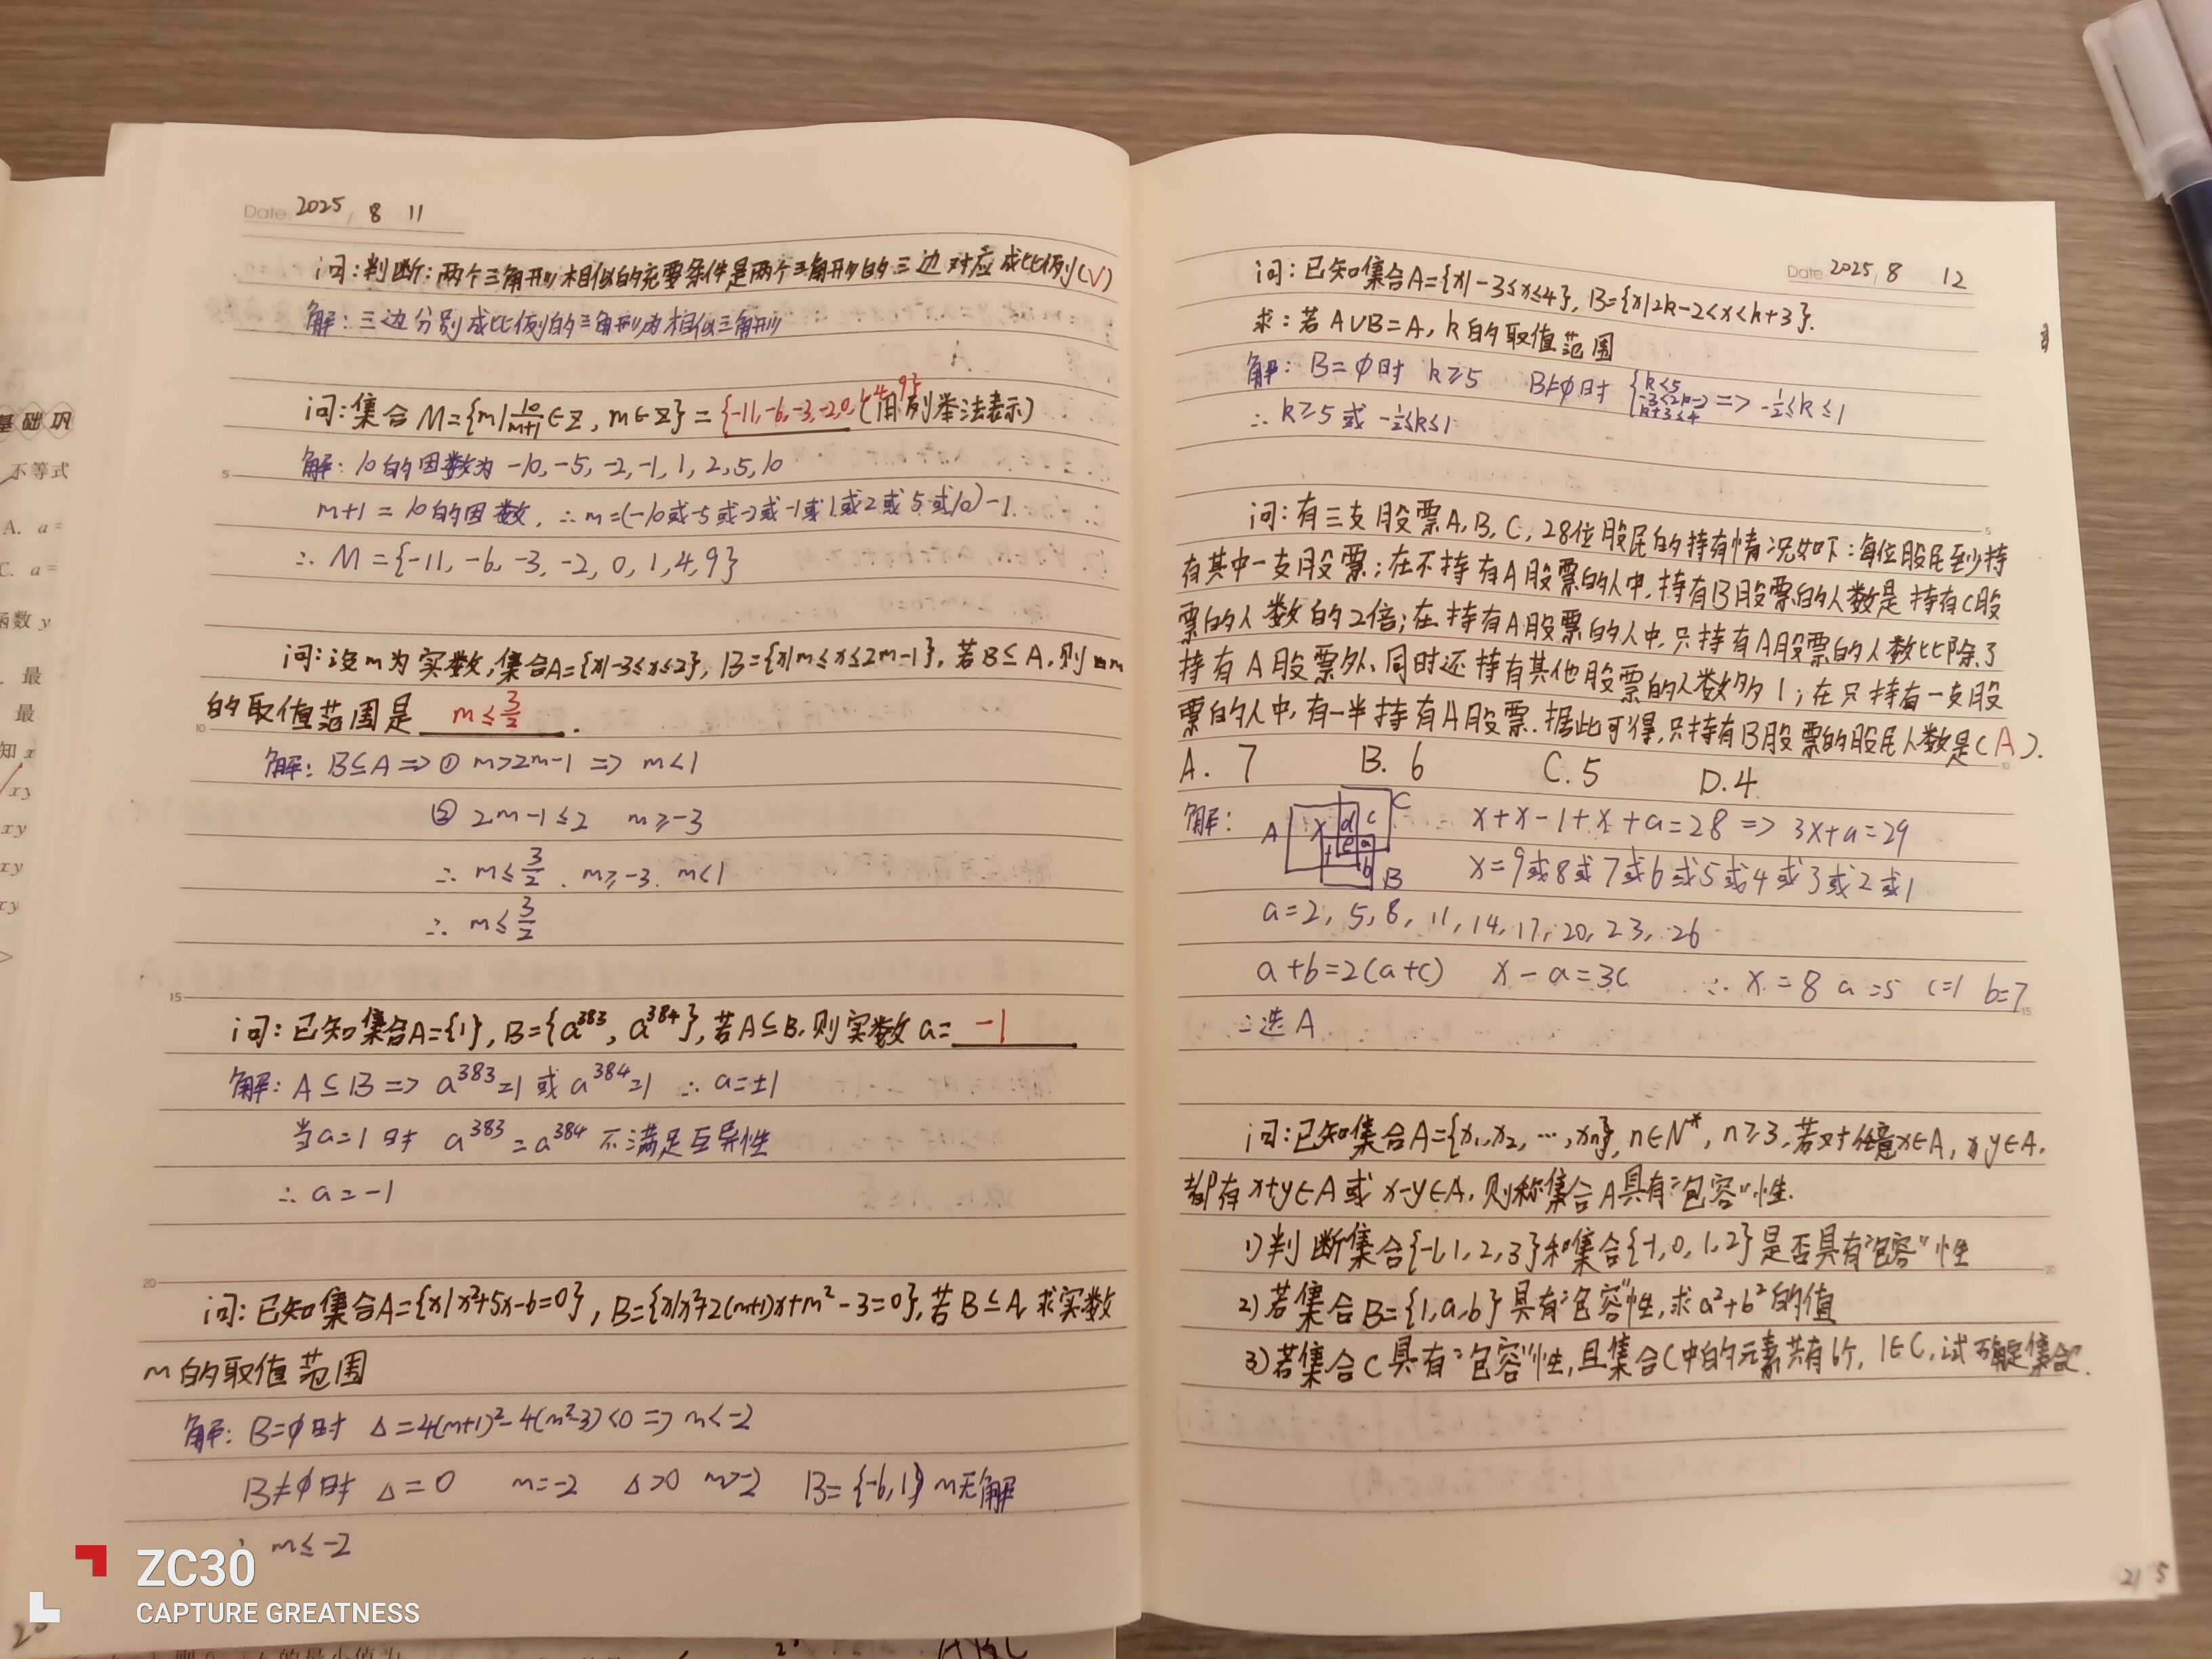 基础巩
不等式
A. a=
C. a=
函数 y
最
最
知 x
xy
xy
xy
xy
Date 2025 / 8 11
问:判断:两个三角形相似的充要条件是两个三角形的三边对应成比例(√)
解:三边分别成比例的三角形为相似三角形
问:集合M={m|10/(m+1)∈Z, m∈Z}={-11,-6,-3,-2,0,1,4,9}(用列举法表示)
解:10的因数为 -10,-5,-2,-1,1,2,5,10
m+1=10的因数,∴m=(-10或-5或-2或-1或1或2或5或10)-1.
∴ M={-11, -6, -3, -2, 0, 1,4,9}
问:设m为实数,集合A={x|-3≤x≤2}, B={x|m≤x≤2m-1},若B⊆A,则m
的取值范围是 m≤3/2 .
解:B⊆A=>① m>2m-1 => m<1
② 2m-1≤2 m≥-3
∴ m≤3/2 、m≥-3、m<1
∴ m≤3/2
15
问:已知集合A={1}, B={a³⁸³, a³⁸⁴},若A⊆B,则实数a= -1
解:A⊆B=> a³⁸³=1 或 a³⁸⁴=1 ∴a=±1
当a=1时 a³⁸³=a³⁸⁴ 不满足互异性
∴a=-1
20
问:已知集合A={x|x²+5x-6=0}, B={x|x²+2(m+1)x+m²-3=0},若B⊆A,求实数
m的取值范围
解:B=φ时 Δ=4(m+1)²-4(m²-3)<0=>m<-2
B≠φ时 Δ=0 m=-2 Δ>0 m>-2 B={-6,1} m无解
∴ m≤-2
Date 2025 / 8 12
问:已知集合A={x|-3≤x≤4}, B={x|2k-2<x<k+3}.
求:若A∪B=A, k的取值范围
解:B=φ时 k≥5 B≠φ时 {k<5 -3≤2k-2 k+3≤4 => -1/2≤k≤1
∴k≥5或-1/2≤k≤1
问:有三支股票A,B,C,28位股民的持有情况如下:每位股民至少持
有其中一支股票;在不持有A股票的人中,持有B股票的人数是持有C股
票的人数的2倍;在持有A股票的人中,只持有A股票的人数比除了
持有A股票外、同时还持有其他股票的人数多1;在只持有一支股
票的人中,有一半持有A股票.据此可得,只持有B股票的股民人数是(A).
A. 7 B. 6 C. 5 D. 4
解: A x d c C f e a b B x+x-1+x+a=28=>3x+a=29
x=9或8或7或6或5或4或3或2或1
a=2, 5, 8, 11, 14, 17, 20, 23, 26
a+b=2(a+c) x-a=3c ∴x=8 a=5 c=1 b=7
∴选A
问:已知集合A={x₁,x₂,…,xₙ}, n∈N*, n≥3,若对任意x∈A, y∈A,
都有x+y∈A或x-y∈A,则称集合A具有"包容"性.
1)判断集合{-1,1,2,3}和集合{-1,0,1,2}是否具有"包容"性
2)若集合B={1,a,b}具有"包容"性,求a²+b²的值
3)若集合C具有"包容"性,且集合C中的元素共有6个,1∈C,试确定集合C.
ZC30
CAPTURE GREATNESS